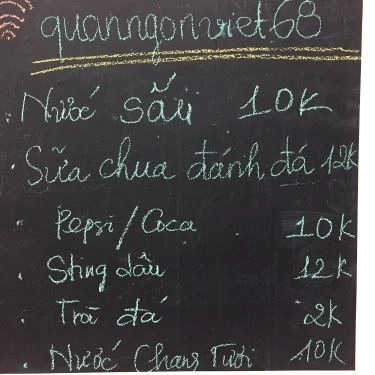 quanngonviet68
Nước sấu 10K
Sữa chua đánh đá 12K
Pepsi/Coca 10K
Sting dâu 12K
Trà đá 2K
Nước Chanh Tươi 10K